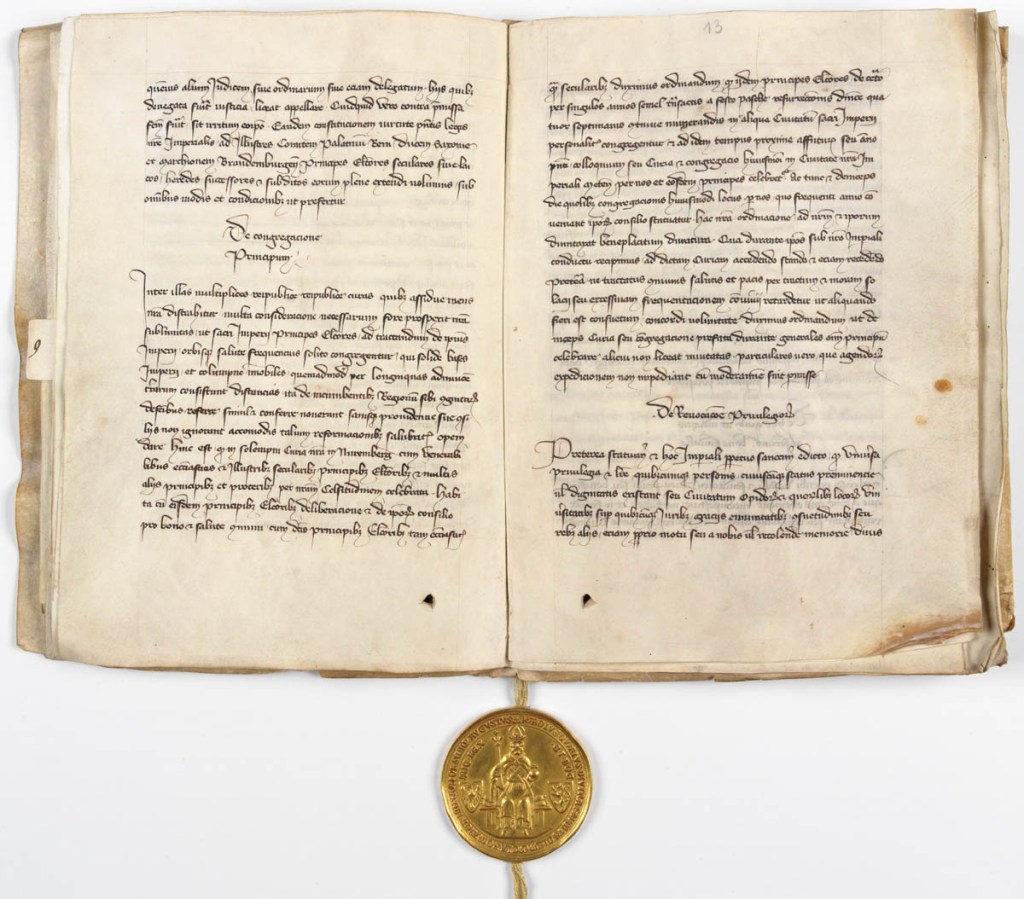 quencius alium Judicem siue ordinarium siue eciam delegatum hijs quibȝ
denegata fuerit iusticia liceat appellare Quidquid vero contra p̄missa
factum fuerit sit irritum eo ipso Eandem constitucionem virtute p̄ntis legis
nr̄e Imperialis ad Illustres Comitem Palatinum Reni Ducem Saxonie
et marchionem Brandemburgen̄ Principes El̄tores seculares siue lay
cos heredes successores ⁊ subditos eorum plene extendi volumus sub
omnibus modis et condicionibȝ ut prefertur
De congregacione
Principum
Inter illas multiplices reipublice reipublice curas quibȝ assidue mens
nr̄a distrahitur multa consideracione necessarium fore prospexit nr̄a
sublimitas ut sacri Imperij Principes El̄tores ad tractandum de ipius
Imperij orbisqȝ salute frequencius solito congregentur qui solide bases
Imperij et columpne inmobiles quemadmodū per longinquas adinuicē
terrarum consistunt distancias ita de incumbentibȝ Regionū sibi cognitarȝ
defectibus referre simul ⁊ conferre nouerunt sanisqȝ prouidencie sue cōsi
lijs non ignorant accomodis talium reformacionibȝ salubriter opem
dare Hinc est qȝ in solempni Curia nr̄a in Nuremberg cum Venerabi
libus ecc̄asticis ⁊ Illustribȝ secularibȝ Principibȝ El̄toribȝ ⁊ multis
alijs principibȝ et proceribȝ per nr̄am Celsitudinem celebrata habi
ta cū eisdem principibȝ El̄toribȝ deliberacione ⁊ de ipoȝ consilio
pro bono ⁊ salute cōmuni cum dc̄is principibȝ El̄toribȝ tam ecc̄asticis
13
qȝ secularibȝ duximus ordinandum qȝ ijdem principes El̄tores de cet̄o
per singulos annos semel tn̄sactis a festo pasche resurrectionis dn̄ice qua
tuor septimanis cōtinue nūmerandis in aliqua Ciuitatū sacri Imperij
personalit̄ congregentur ⁊ ad idem tempus proxime affuturū seu āno
pn̄ti colloquium seu Curia ⁊ congregacio huiusmōi in Ciuitate nr̄a Im
periali Meten̄ per nos et eosdem principes celebret̄ Ac tunc ⁊ deinceps
die quolibȝ congregacionis huiusmodi locus p̄ nos quo sequenti anno cō
ueniant ipoȝ consilio statuatur hac nr̄a ordinacione ad nr̄m ⁊ ipsorum
dumtaxat beneplacitum duratura Qua durante ipōs sub nr̄o Imp̄iali
conductu recipimus ad dictam Curiam accedendo stando ⁊ eciam recedēdo
Preterea ne tractatus cōmunis salutis et pacis per tractum ⁊ moram so
lacij seu excessiuam frequentacionem conuiuij retardetur ut aliquando
fieri est consuetum concordi voluntate duximus ordinandum ut de
inceps Curia seu congregacione prefata durante generales omnī principū
celebrare alicui non liceat inuitatas particulares vero que agendoȝ
expedicionem non impediant cū moderamine sint p̄misse
De Reuocacōe Priuilegioȝ
Preterea statuimȝ ⁊ hoc Imp̄iali p̄petuo sancimȝ edicto qȝ vniuersa
priuilegia ⁊ lr̄e quibuscumqȝ personis cuiuscūqȝ status preeminencie
ul̄ dignitatis existant seu Ciuitatum Opidoȝ ⁊ quorūlibȝ locoȝ vni
uersitatibȝ sup quibuscūqȝ Juribȝ gracijs emunitatibȝ cōsuetudinibȝ seu
rebȝ alijs eciam p̄prio motu seu a nobis ul̄ recolende memorie diuis
9